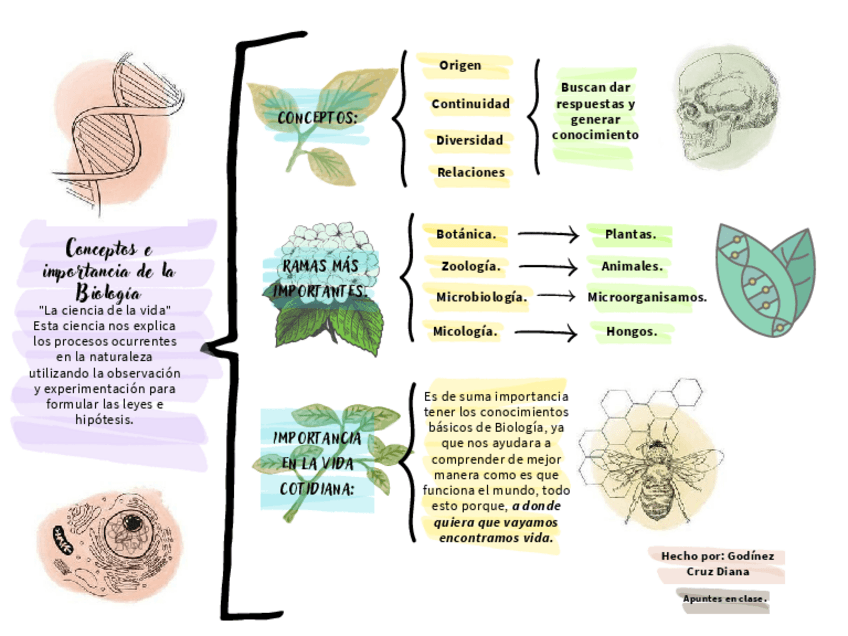 Conceptos e
importancia de la
Biología
"La ciencia de la vida"
Esta ciencia nos explica
los procesos ocurrentes
en la naturaleza
utilizando la observación
y experimentación para
formular las leyes e
hipótesis.
CONCEPTOS:
Origen
Continuidad
Diversidad
Relaciones
Buscan dar
respuestas y
generar
conocimiento
RAMAS MÁS
IMPORTANTES:
Botánica.
Plantas.
Zoología.
Animales.
Microbiología.
Microorganisamos.
Micología.
Hongos.
IMPORTANCIA
EN LA VIDA
COTIDIANA:
Es de suma importancia
tener los conocimientos
básicos de Biología, ya
que nos ayudara a
comprender de mejor
manera como es que
funciona el mundo, todo
esto porque, a donde
quiera que vayamos
encontramos vida.
Hecho por: Godínez
Cruz Diana
Apuntes en clase.